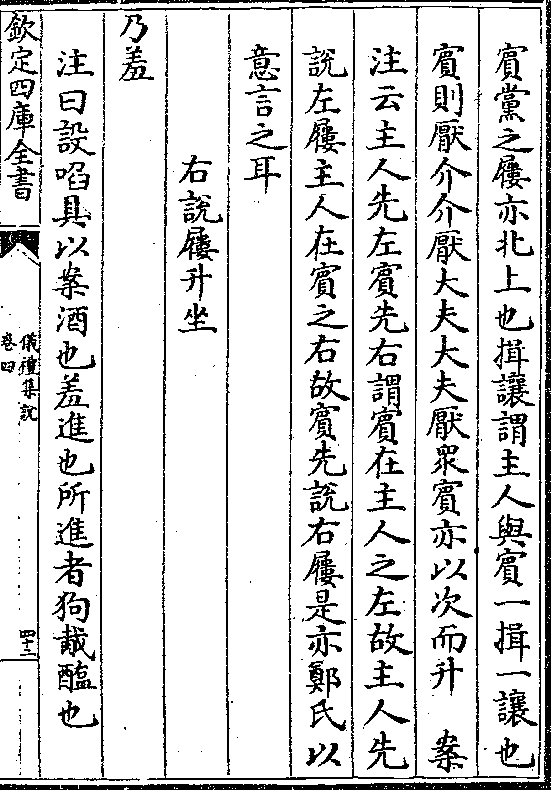 賓黨之屨亦北上也揖讓謂主人與賓一揖一讓也
賓則厭介介厭大夫大夫厭衆賓亦以次而升　案
注云主人先左賓先右謂賓在主人之左故主人先
說左屨主人在賓之右故賓先說右屨是亦鄭氏以
意言之耳
右說屨升坐
乃羞
注曰設啗具以案酒也羞進也所進者狗胾醢也
欽定四庫全書
儀禮集說
卷四
四十二